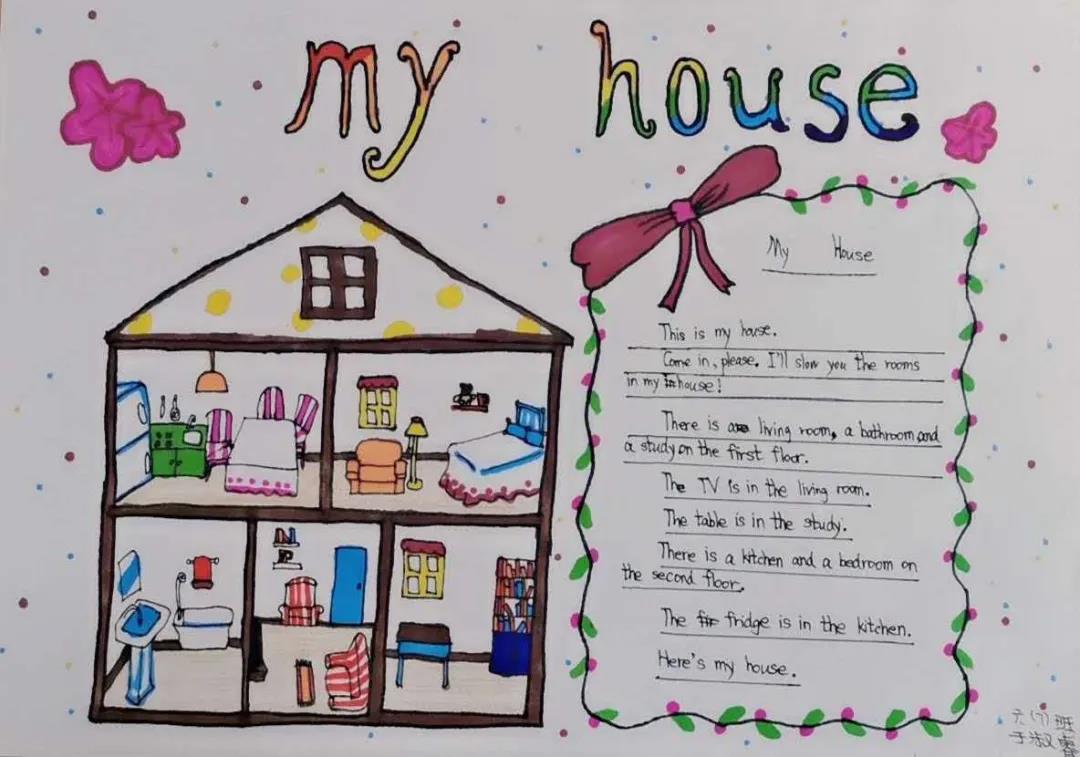 my house
My House
This is my house.
Come in, please. I'll slow you the rooms
in my house!
There is a living room, a bathroom and
a study on the first floor.
The TV is in the living room.
The table is in the study.
There is a kitchen and a bedroom on
the second floor.
The fridge is in the kitchen.
Here's my house.
六(7)班
于淑